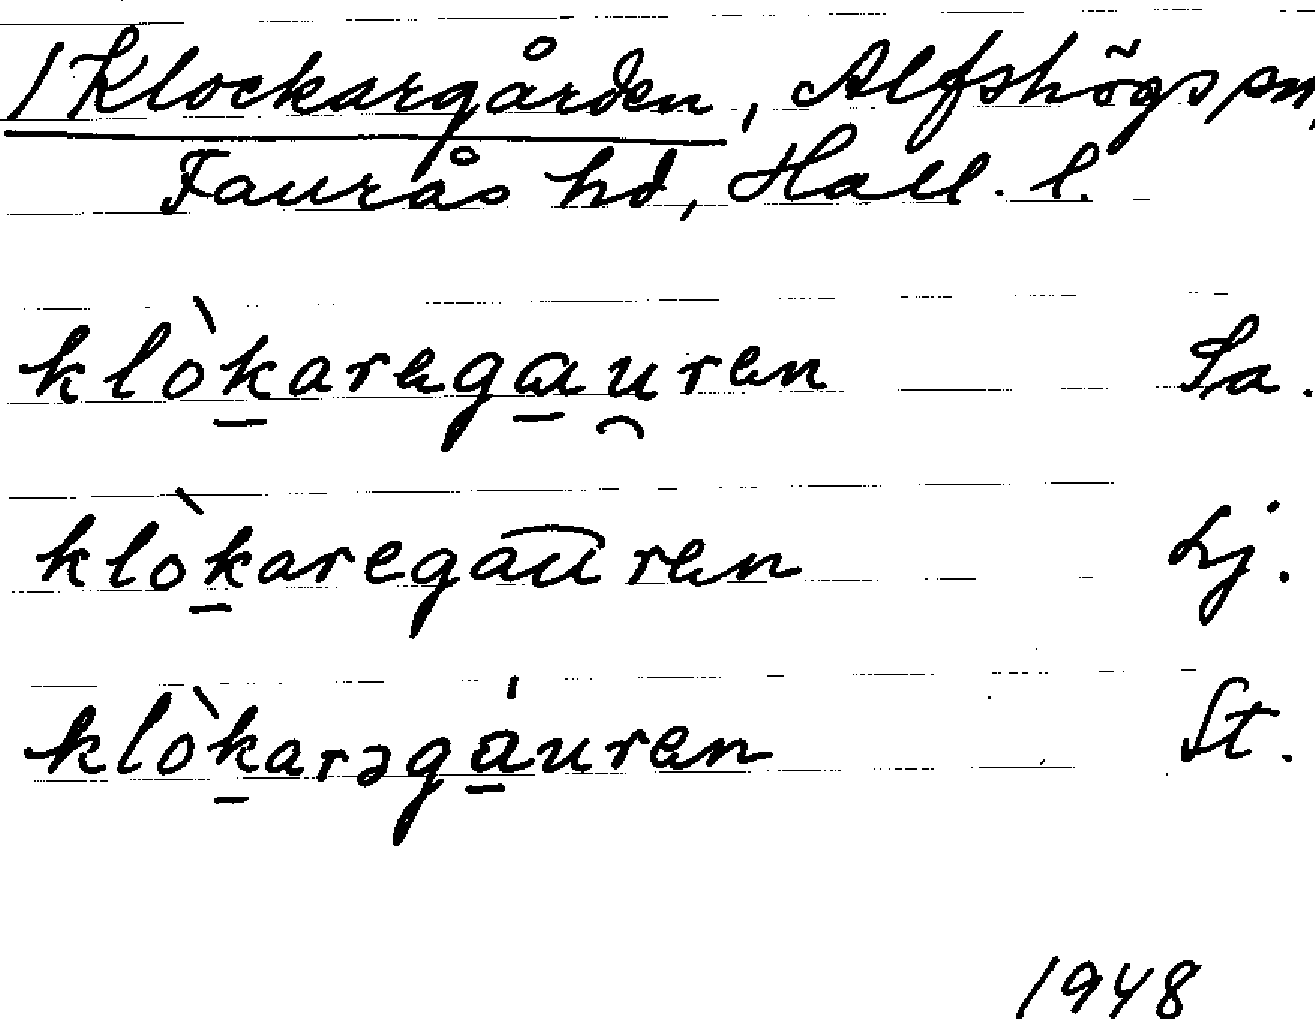 /Klockargården, Alfshögs sn,
Faurås hd, Hall. l.
klòkaregauren Sa.
klòkaregauren Lj.
klòkarəgáuren St.
1948